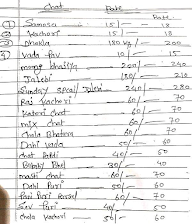 Chat Rate
Rate
① Samosa 15/- 18
② Kachori 15/- 18
③ Dhokla 180 kg/- 200
Vada Pav 10/- 15
moong bhajiya 200/- 240
Jalebi 180/- 210
Sunday Special Jalebi 240/- 280
Raj Kachori 60/- 70
Katori Chat 60/- 70
mix chat 60/- 70
Chole Bhature 60/- 70
Dahi vada 50/- 60
chat 40/- 50
Bhel 30/- 40
chat 60/- 70
Dahi Puri 50/- 60
Pani Puri 60/- 70
Sev Puri 40/- 50
chole Kachori 50/- 60